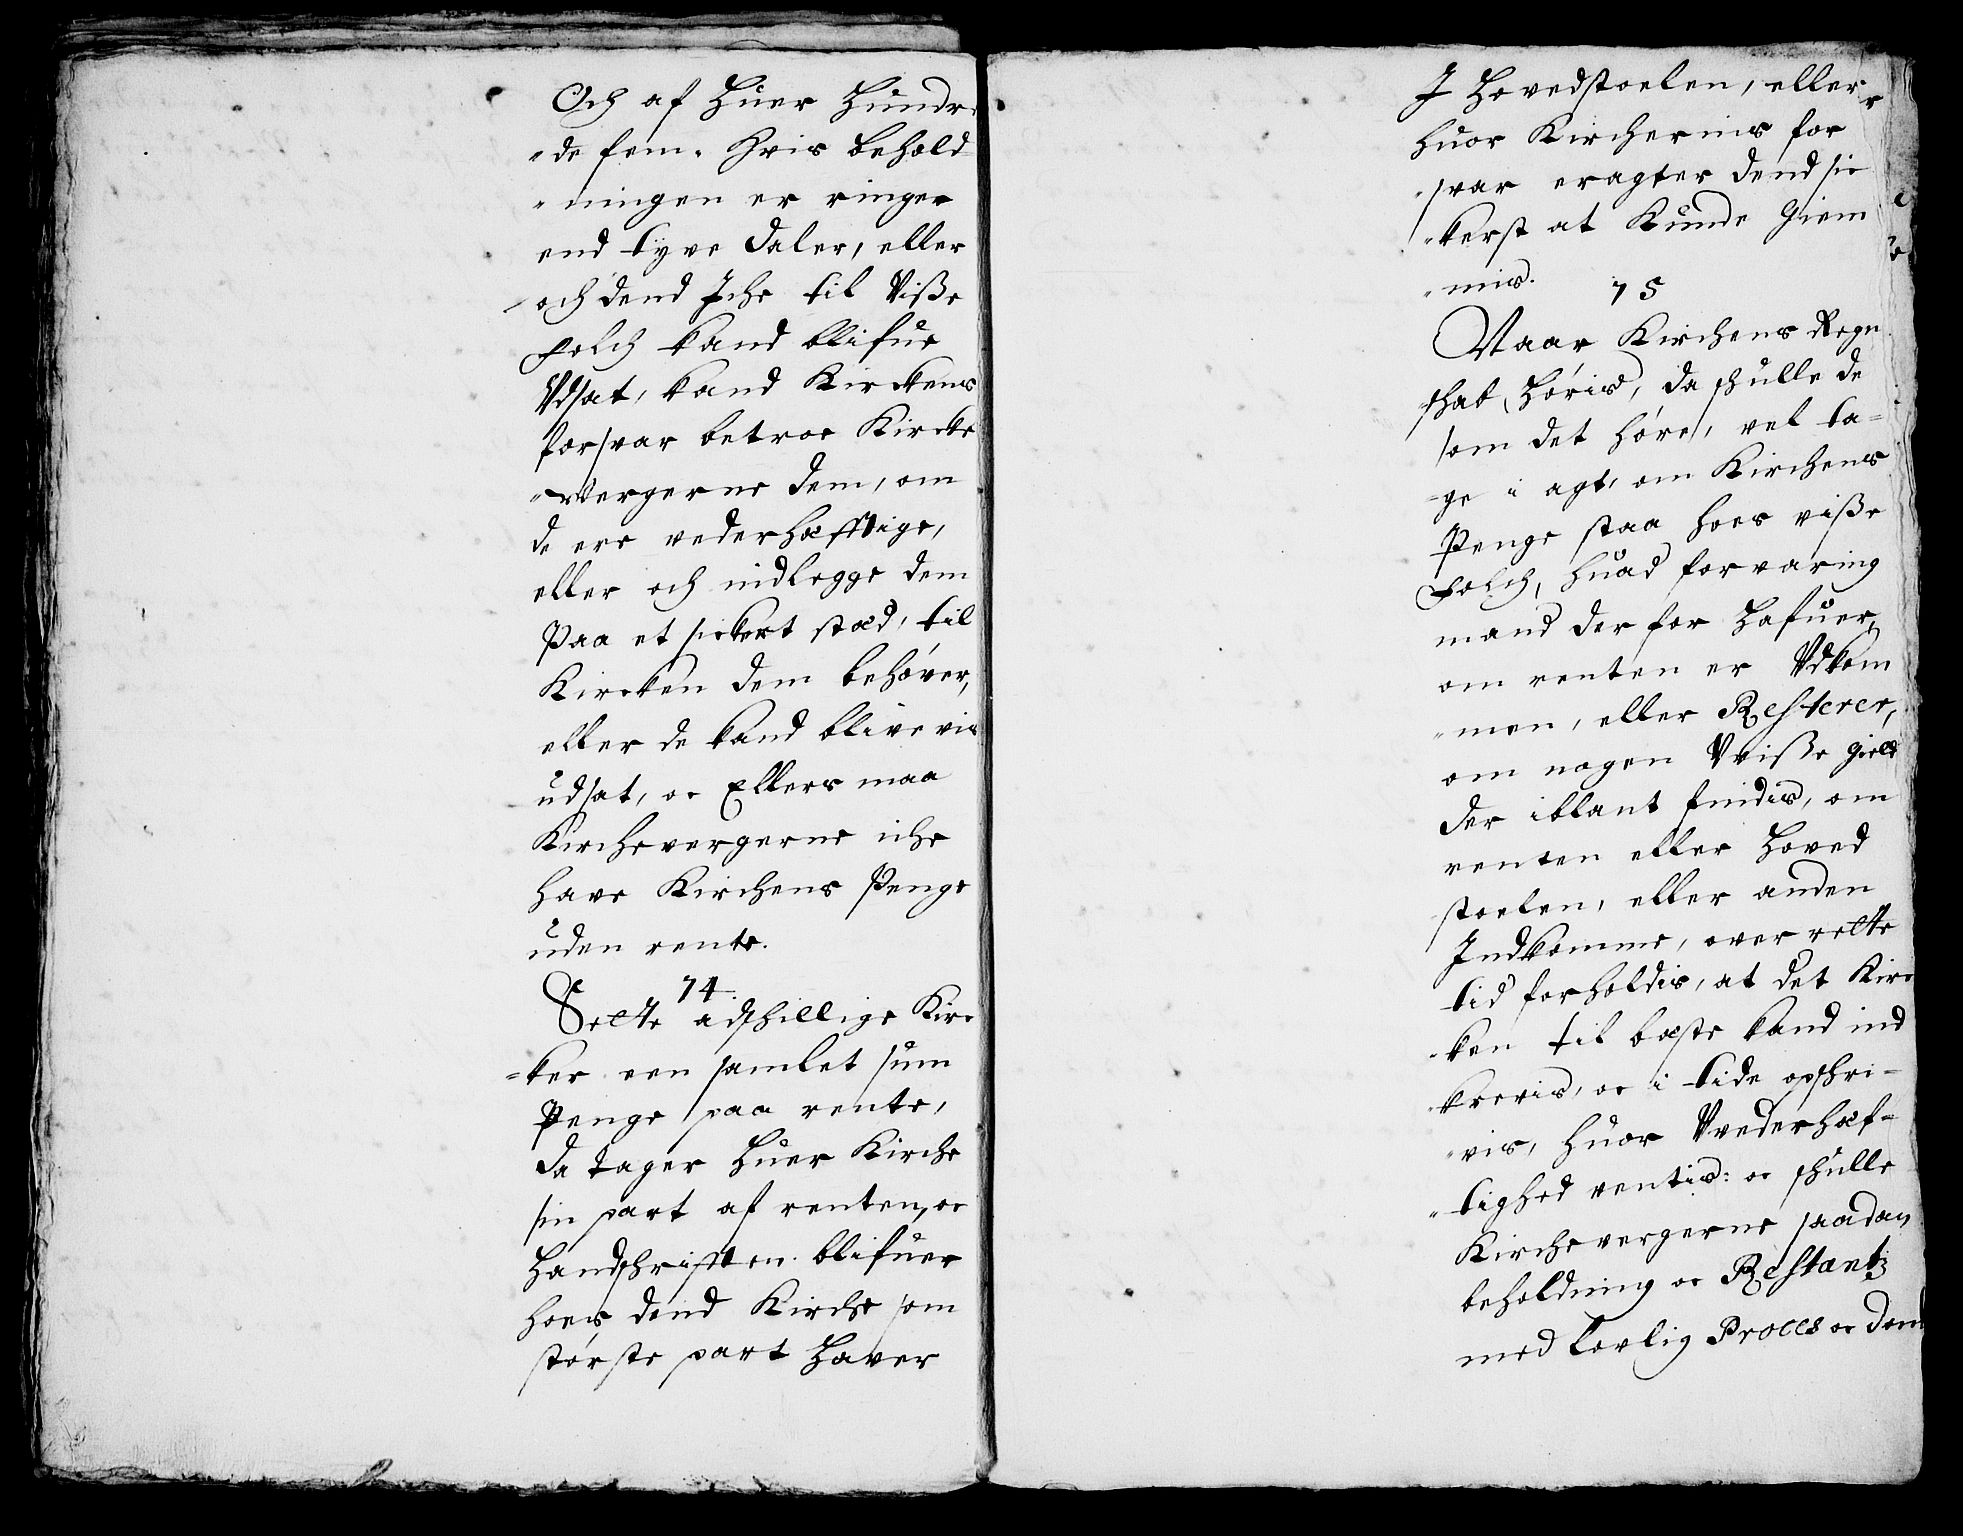 Och af Huer Hundre
"de fem. Hvis behold=
"ningen er ringer
end tyve Daler, eller
och dend Iche til Viße
folch kand blifue
Vdsat, kand Kirckens
forsvar betroe Kircke
"vergerne dem, om
de ere vederhæfftige,
eller och indlegge dem
Paa et sickert stæd, til
Kircken dem behøver,
eller de kand blive vis
udsat, oc Ellers maa
Kirchevergerne iche
have Kirchens Penge
uden rente.
74.
Sette adschillige Kirc
=ker een samlet sum
Penge paa rente,
da tager Huer Kirche
sin part af renten, oc
Handschrifften blifuer
hoes dend Kirche som
største part Haver
I Hovedstoelen, eller
huor Kircherins for
"svar eragter dend sic
"kerst at Kunde Giem
"mis.
75
Naar Kirchens Regn
schab Høris, da schulle de
som det høre, vel ta=
=ge i agt, om Kirchens
Penge staa hoes viße
folch, huad forvaring
mand der for Hafuer,
om renten er Vdkom
"men, eller Resterer,
om nogen Vviße gield
der iblant findis, om
renten eller Hoved
stoelen, eller anden
Indkomme, over rette
tid forholdis, at det Kirc
"ken til bæste kand ind
kreris, oc i tide opschri=
"vis, huor Vvederhæf=
"tighed ventis: oc schulle
Kirchevergerne saadan
beholdning oc Restantz
med lovlig Proces oc Dom